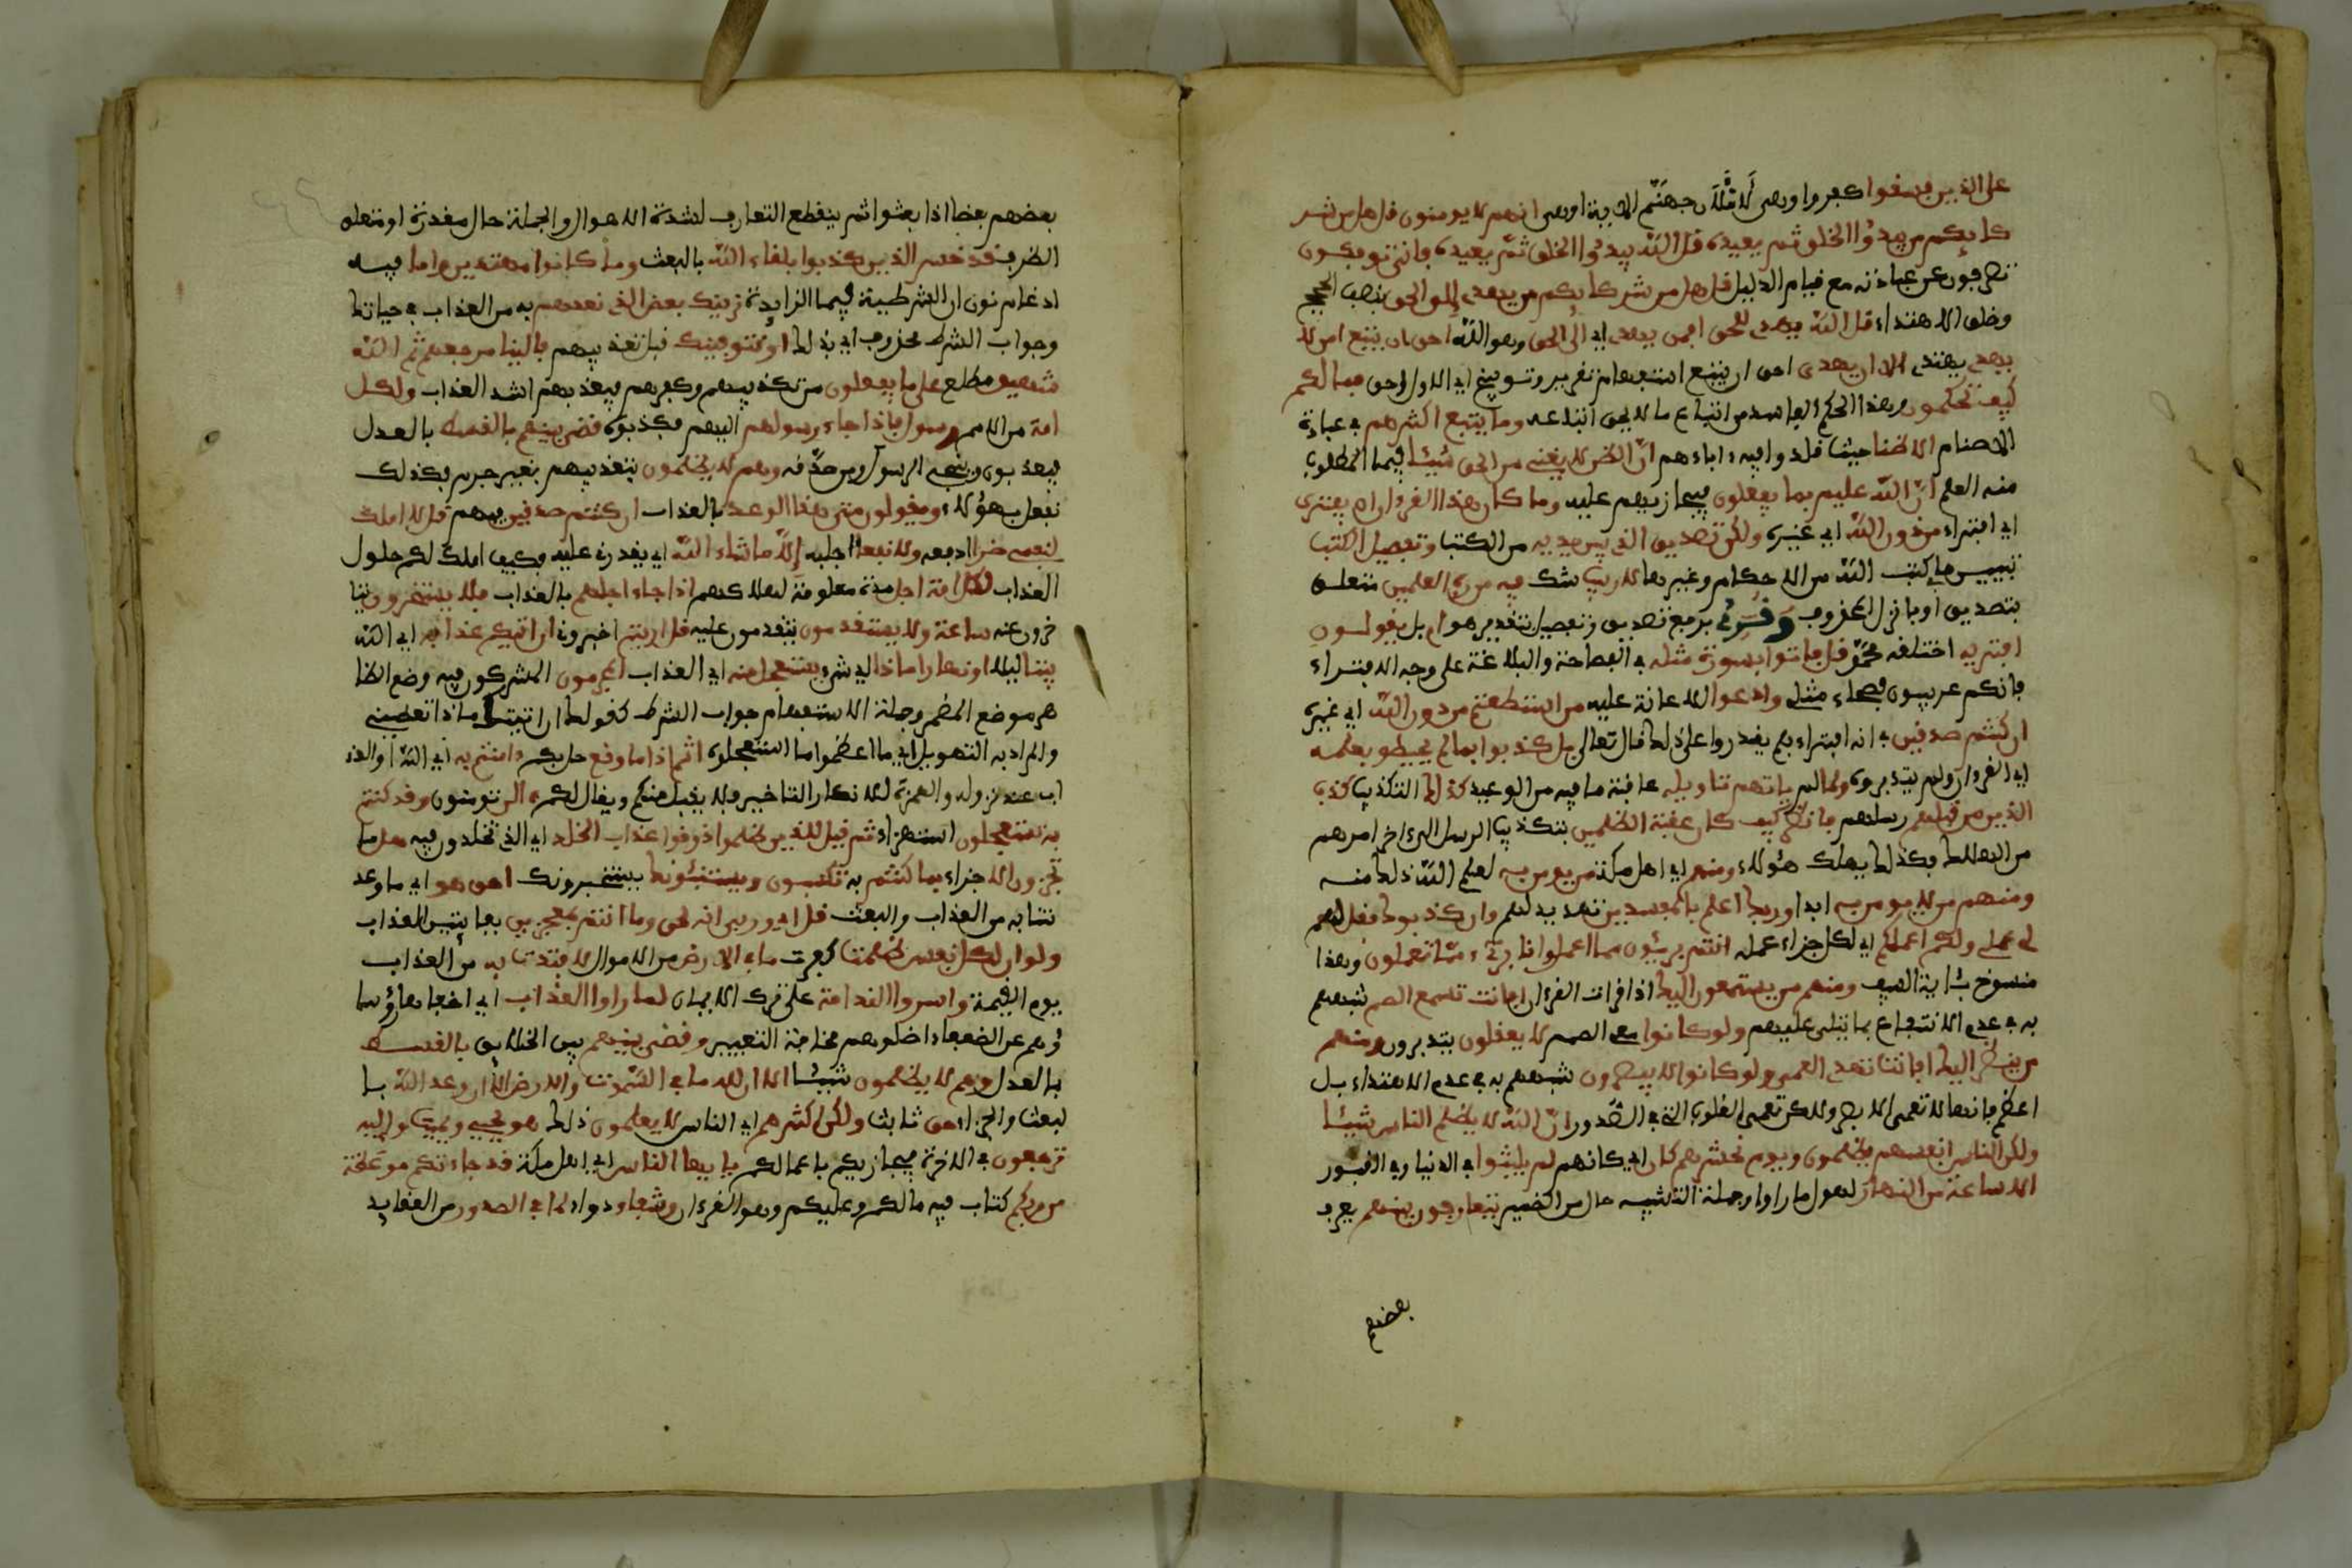 على الذين فسقوا كفروا وهي لأملأن جهنم الاية او هي انهم لا يومنون قل هل من شر
كائكم من يبدؤا الخلق ثم يعيده قل الله يبدؤا الخلق ثم يعيده فانى توفكون
تصرفون عن عبادته مع قيام الدليل قل هل من شركائكم من يهدي إلى الحق بنصب الحجج
وخلق الاهتداء قل الله يهدي للحق افمن يهدي إلى الحق وهو الله احق ان يتبع امن لا
يهدي يهتدي الا ان يهدى احق ان يتبع استفهام تقرير وتوبيخ اي الاول احق فما لكم
كيف تحكمون هذا الحكم الفاسد من اتباع ما لا يحق اتباعه وما يتبع اكثرهم في عبادة
الاصنام الا ظنا حيث قلدوا فيه اباءهم ان الظن لا يغني من الحق شيئا فيما المطلوب
منه العلم ان الله عليم بما يفعلون فيجازيهم عليه وما كان هذا القرءان ان يفترى
اي افتراء من دون الله اي غيره ولكن تصديق الذي بين يديه من الكتب وتفصيل الكتب
تبيين ما كتب الله من الاحكام وغيرها لا ريب شك فيه من رب العلمين متعلق
بتصديق او بانزل المحذوف وقرئ برفع تصديق وتفصيل بتقدير هو ام بل يقولون
افتريه اختلقه محمد قل فاتوا بسورة مثله في الفصاحة والبلاغة على وجه الافتراء
فانكم عربيون فصحاء مثلي وادعوا للاعانة عليه من استطعتم من دون الله اي غيره
ان كنتم صدقين في انه افتراء فلم يقدروا على ذلك قال تعالى بل كذبوا بما لم يحيطوا بعلمه
اي القرءان ولم يتدبروه ولما لم ياتهم تاويله عاقبة ما فيه من الوعيد كذلك التكذيب كذب
الذين من قبلهم رسلهم فانظر كيف كان عقبة الظلمين بتكذيب الرسل اي اخر امرهم
من الهلاك فكذلك يهلك هؤلاء ومنهم اي اهل مكة من يومن به لعلم الله ذلك منه
ومنهم من لا يومن به ابدا وربك اعلم بالمفسدين تهديد لهم وان كذبوك فقل لهم
لي عملي ولكم عملكم اي لكل جزاء عمله انتم بريئون مما اعمل وانا بريء مما تعملون وهذا
منسوخ باية السيف ومنهم من يستمعون اليك اذا قرات القرءان افانت تسمع الصم شبههم
بهم في عدم الانتفاع بما يتلى عليهم ولو كانوا مع الصمم لا يعقلون يتدبرون ومنهم
من ينظر اليك افانت تهدي العمي ولو كانوا لا يبصرون شبههم بهم في عدم الاهتداء بل
اعظم فانها لا تعمى الابصر ولكن تعمى القلوب التي في الصدور ان الله لا يظلم الناس شيئا
ولكن الناس انفسهم يظلمون ويوم نحشرهم كان اي كانهم لم يلبثوا في الدنيا او القبور
الا ساعة من النهار لهول ما راوا وجملة التشبيه حال من الضمير يتعارفون بينهم يعرف
بعضهم
بعضهم بعضا اذا بعثوا ثم ينقطع التعارف لشدة الاهوال والجملة حال مقدرة او متعلق
الظرف قد خسر الذين كذبوا بلقاء الله بالبعث وما كانوا مهتدين واما فيه
ادغام نون ان الشرطية في ما الزايدة نرينك بعض الذي نعدهم به من العذاب في حياتك
وجواب الشرط محذوف اي فذاك او نتوفينك قبل تعذيبهم فالينا مرجعهم ثم الله
شهيد مطلع على ما يفعلون من تكذيبهم وكفرهم فيعذبهم اشد العذاب ولكل
امة من الامم رسول فاذا جاء رسولهم اليهم فكذبوه قضي بينهم بالقسط بالعدل
فيعذبون وينجى الرسول ومن صدقه وهم لا يظلمون بتعذيبهم بغير جرم فكذلك
نفعل بهؤلاء ويقولون متى هذا الوعد بالعذاب ان كنتم صدقين فيه قل لا املك
لنفسي ضرا ادفعه ولا نفعا اجلبه إلا ما شاء الله اي يقدرني عليه فكيف املك لكم حلول
العذاب لكل امة اجل مدة معلومة لهلاكهم اذا جاء اجلهم بالعذاب فلا يستخرون يتا
خرون عنه ساعة ولا يستقدمون يتقدمون عليه قل اريتم اخبروني ان اتيكم عذابه اي الله
بيتا ليلا او نهارا ماذا اي شيء يستعجل منه اي العذاب المجرمون المشركون فيه وضع الظا
هر موضع المضمر وجملة الاستفهام جواب الشرط كقولك ان اتيتك ماذا تعطيني
والمراد به التهويل اي ما اعظم ما استعجلوه اثم اذا ما وقع حل بكم ءامنتم به اي الله او العذ
اب عند نزوله والهمزة لانكار التاخير فلا يقبل منكم ويقال لكم ءالن تومنون وقد كنتم
به تستعجلون استهزاء ثم قيل للذين ظلموا ذوقوا عذاب الخلد اي الذي تخلدون فيه هل ما
تجزون الا جزاء بما كنتم به تكسبون ويستنبئونك يستخبرونك احق هو اي ما وعد
تنا به من العذاب والبعث قل اي وربي انه لحق وما انتم بمعجزين بفايتين العذاب
ولو ان لكل نفس ظلمت كفرت ما في الارض من الاموال لافتدت به من العذاب
يوم القيمة واسروا الندامة على ترك الايمان لما راوا العذاب اي اخفاها رؤسا
ؤهم عن الضعفاء اضلوهم مخافة التعيير وقضي بينهم بين الخلايق بالقسط
بالعدل وهم لا يظلمون شيئا الا ان لله ما في السموت والارض الا ان وعد الله با
لبعث والجزاء حق ثابت ولكن اكثرهم اي الناس لا يعلمون ذلك هو يحيي ويميت واليه
ترجعون في الاخرة فيجازيكم باعمالكم يا ايها الناس اي اهل مكة قد جاءتكم موعظة
من ربكم كتاب فيه ما لكم وعليكم وهو القرءان وشفاء دواء لما في الصدور من العقايد